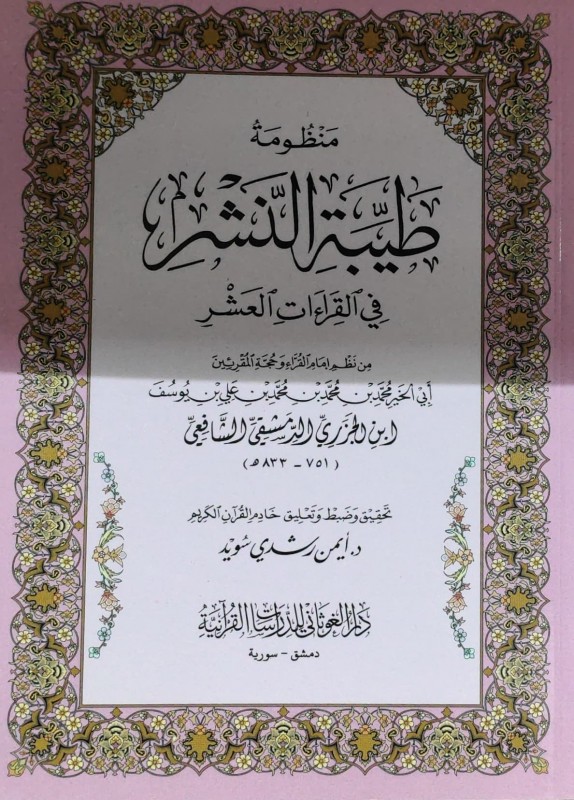 مَنْظُومَةُ
طَيِّبَةِ النَّشْرِ
فِي القِرَاءَاتِ العَشْرِ
مِن نَظْمِ إِمَامِ القُرَّاءِ وَحُجَّةِ المُقْرِئِينَ
أَبِي الخَيْرِ مُحَمَّدِ بْنِ مُحَمَّدِ بْنِ مُحَمَّدِ بْنِ عَلِي بْنِ يُوسُفَ
ابْنِ الجَزَرِيِّ الدِّمَشْقِيِّ الشَّافِعِيِّ
(٧٥١ - ٨٣٣ هـ)
تَحْقِيق وَضَبْط وَتَعْلِيق خَادِمِ القُرْآنِ الكَرِيمِ
د. أيمن رشدي سويد
دَارُ الغَوْثَانِي لِلدِّرَاسَاتِ القُرْآنِيَّةِ
دمشق - سورية